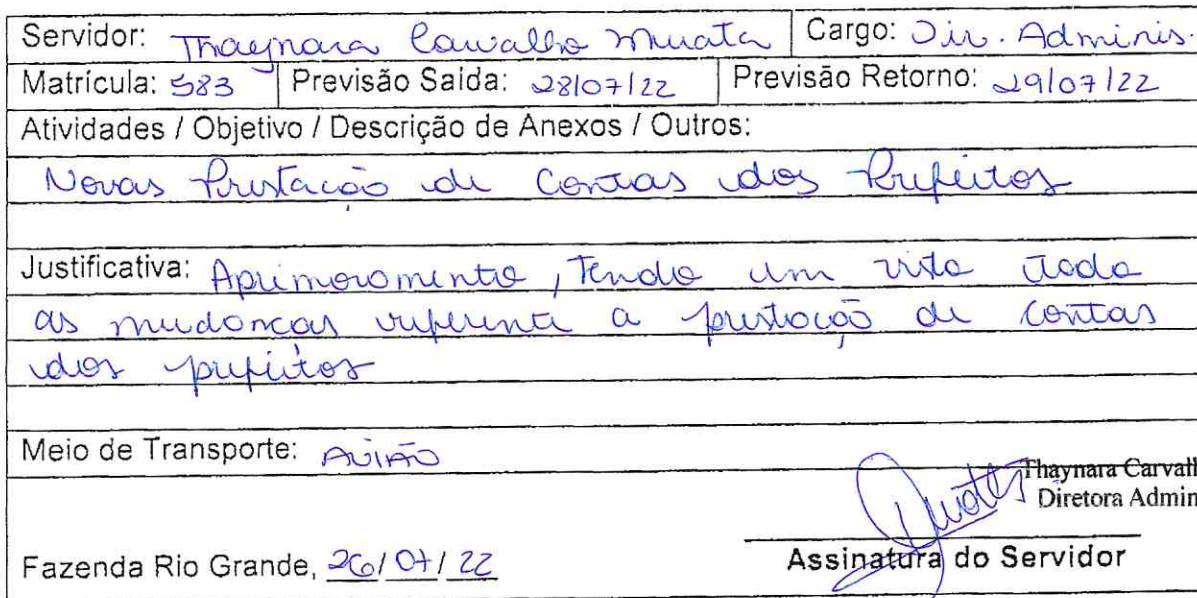 Servidor: Thaynara Carvalho Murata Cargo: Dir. Adminis.
Matrícula: 583 Previsão Saída: 28/07/22 Previsão Retorno: 29/07/22
Atividades / Objetivo / Descrição de Anexos / Outros:
Novas Prestação de Contas dos Prefeitos
Justificativa: Aprimoramento, Tendo um vista toda
as mudanças referente a prestação de contas
dos prefeitos
Meio de Transporte: AVIÃO
Thaynara Carvall
Diretora Admin
Fazenda Rio Grande, 26/07/22
Assinatura do Servidor